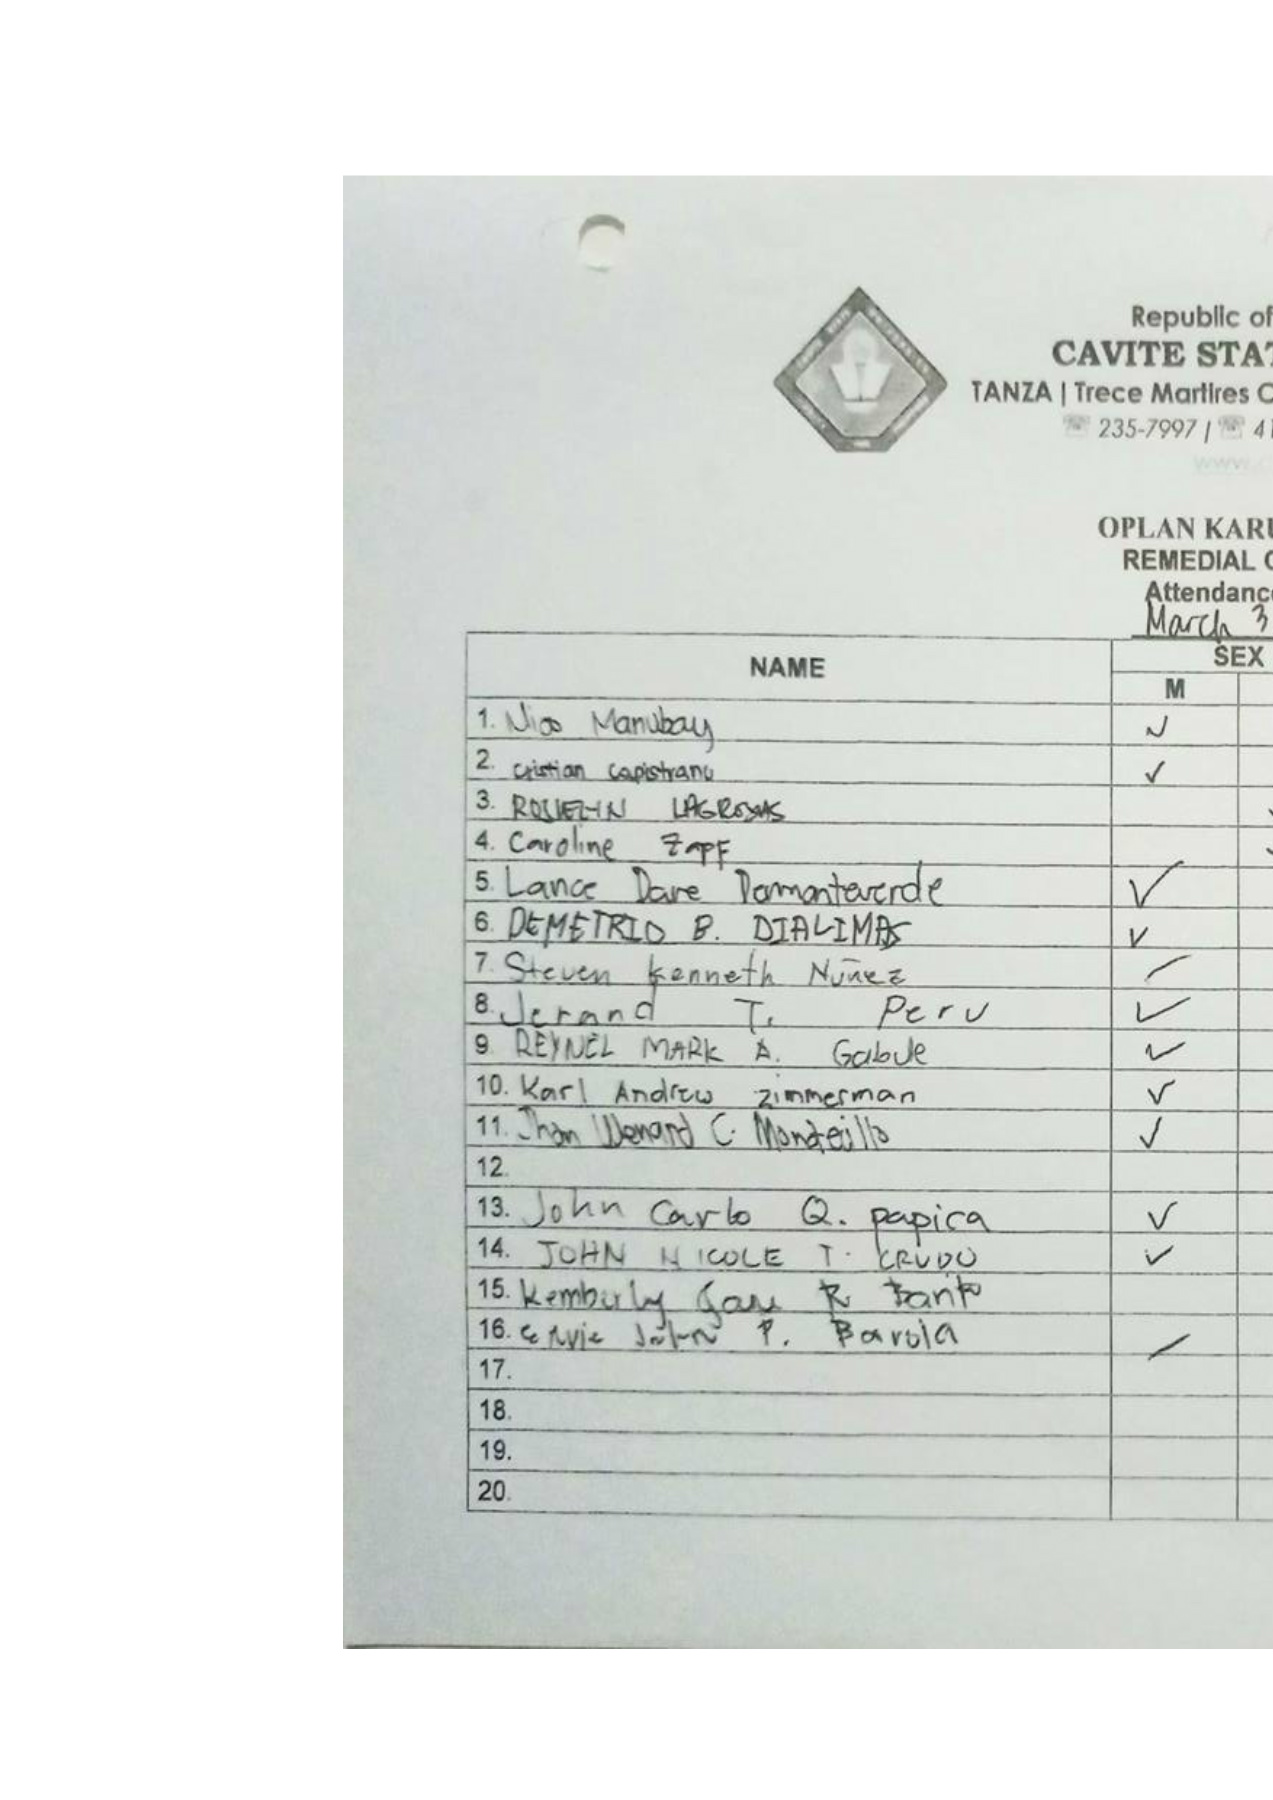 Republic of
CAVITE STAT
TANZA | Trece Martires C
☏ 235-7997 | ☏ 41
www.
OPLAN KARU
REMEDIAL C
Attendanc
March 3
NAME
SEX
M
1. Nico Manubay
2. Cristian Capistrano
3. ROSIELYN LAGROSAS
4. Caroline Zapf
5. Lance Dave Damonteverde
6. DEMETRIO B. DIALIMAS
7. Steven Kenneth Nuñez
8. Jerand T. Peru
9. REYNEL MARK A. Gabule
10. Karl Andrew Zimmerman
11. Jhan Wenard C.
12.
13. John Carlo Q. papica
14. JOHN NICOLE T. CRUDO
15. Kemberly R
16. John P. Barola
17.
18.
19.
20.